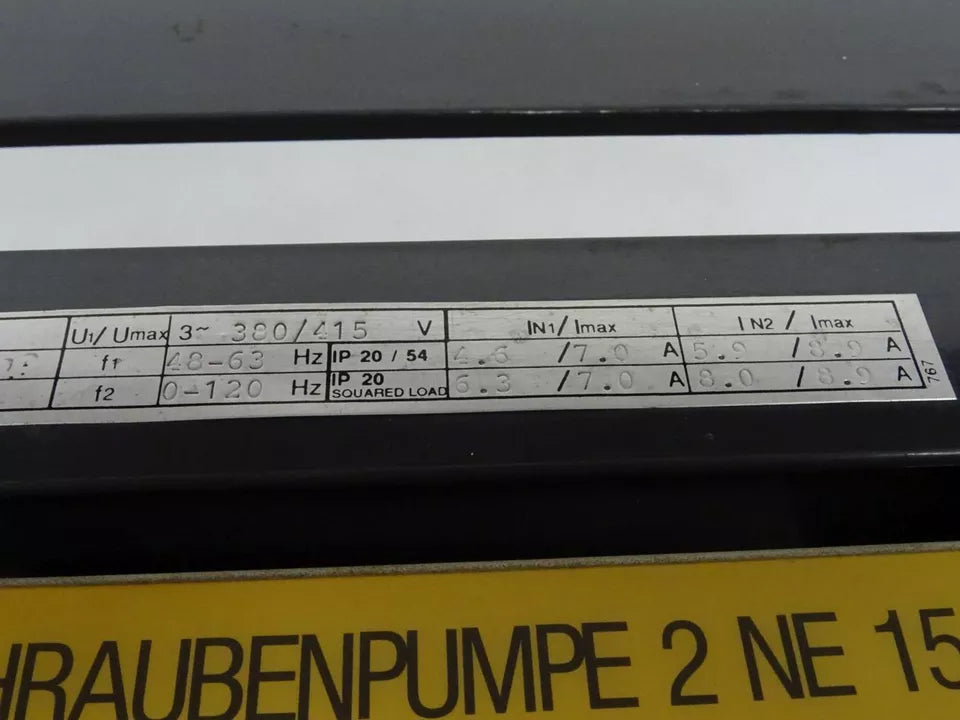 U1/Umax 3~ 380/415 V IN1/Imax IN2 / Imax
f1 48-63 Hz IP 20 / 54 4.6 /7.0 A 5.9 /8.9 A
f2 0-120 Hz IP 20 SQUARED LOAD 6.3 /7.0 A 8.0 /8.9 A
767
HRAUBENPUMPE 2 NE 15